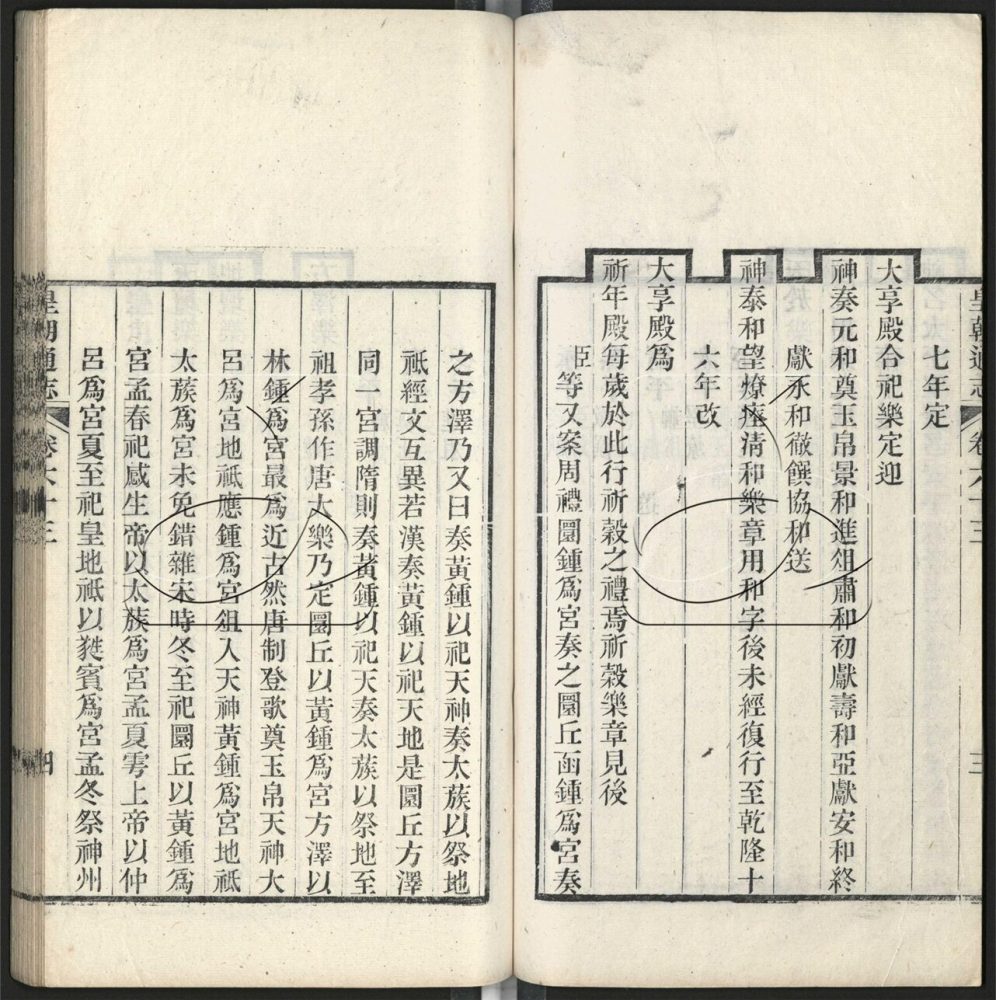 皇朝通志
卷六十三
三
七年定
大享殿合祀樂定迎
神奏元和奠玉帛景和進俎肅和初獻壽和亞獻安和終
獻永和徹饌協和送
神泰和望燎瘞清和樂章用和字後未經復行至乾隆十
六年改
大享殿為
祈年殿每歲於此行祈穀之禮焉祈穀樂章見後
臣等又案周禮圜鍾爲宮奏之圜丘函鍾爲宮奏
之方澤乃又曰奏黃鍾以祀天神奏太蔟以祭地
祇經文互異若漢奏黃鍾以祀天地是圜丘方澤
同一宮調隋則奏黃鍾以祀天奏太蔟以祭地至
祖孝孫作唐大樂乃定圜丘以黃鍾爲宮方澤以
林鍾爲宮最爲近古然唐制登歌奠玉帛天神大
呂爲宮地祇應鍾爲宮俎入天神黃鍾爲宮地祇
太蔟爲宮未免錯雜宋時冬至祀圜丘以黃鍾爲
宮孟春祀感生帝以太蔟爲宮孟夏雩上帝以仲
呂爲宮夏至祀皇地祇以蕤賓爲宮孟冬祭神州
皇朝通志
卷六十三
四